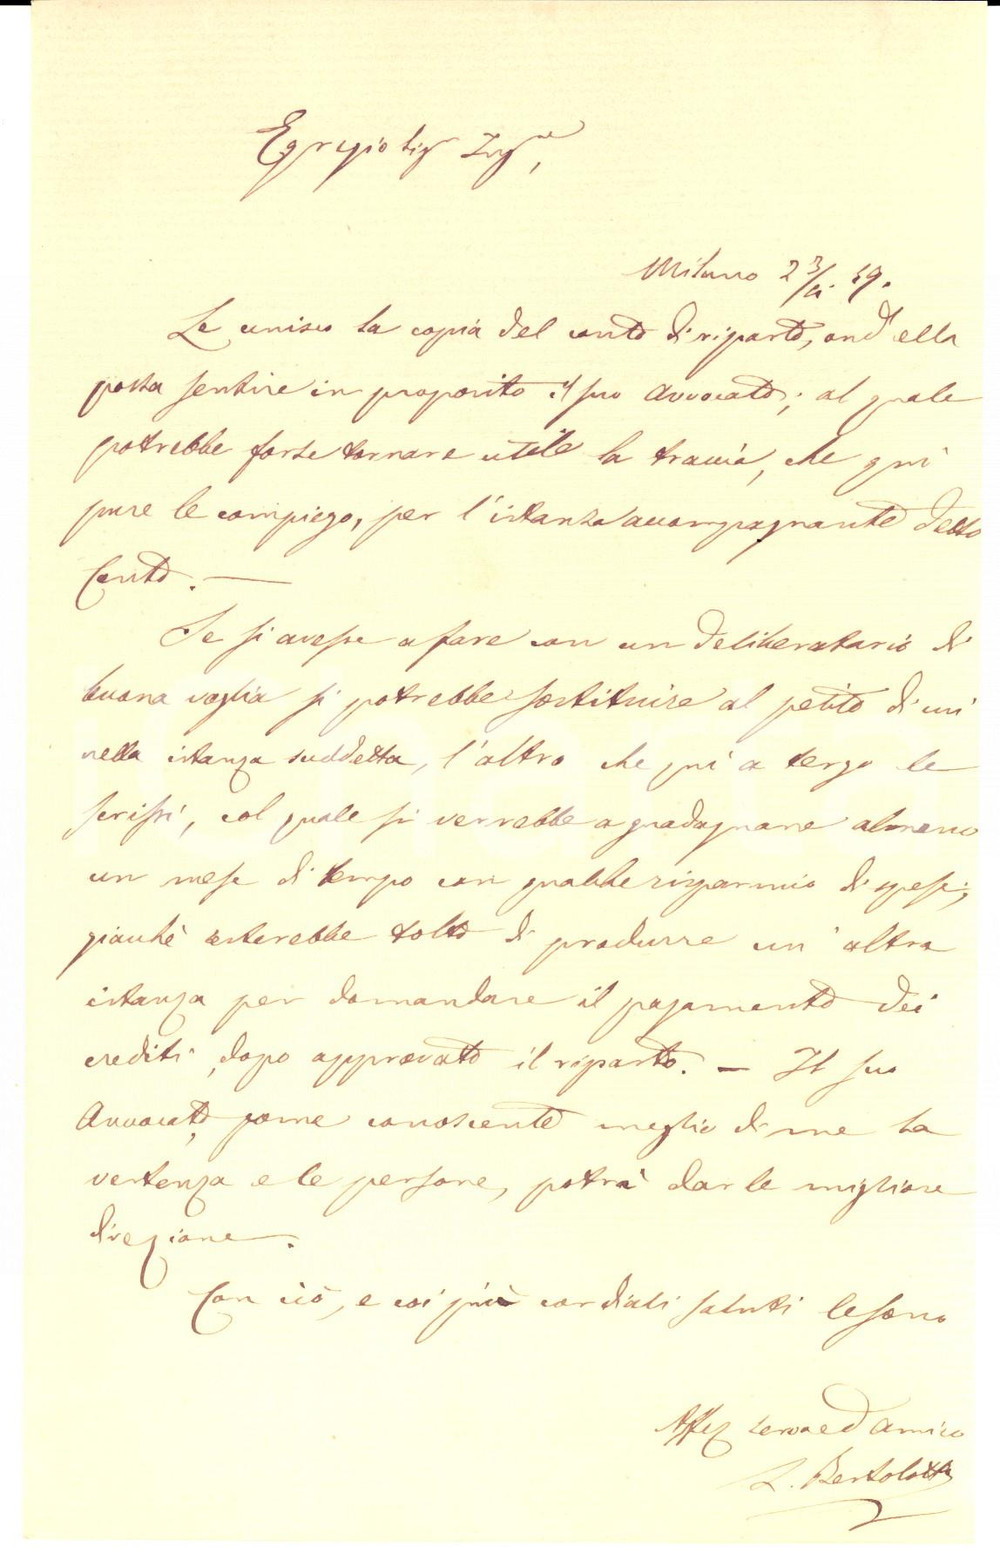 Egregio Sig.r Ing.re,
Milano 23/ 59.
Le unisco la copia del conto di riparto, ond'ella
possa sentire in proposito il suo Avvocato; al quale
potrebbe forse tornare utile la traccia, che qui
pure le compiego, per l'istanza accompagnante detto
Conto. —
Se si avesse a fare con un deliberatario di
buona voglia si potrebbe sostituire al petito di cui
nella istanza suddetta, l'altro che qui a tergo le
scrissi, col quale si verrebbe a guadagnare almeno
un mese di tempo con qualche risparmio di spese,
giacchè resterebbe tolto di produrre un'altra
istanza per domandare il pagamento dei
crediti, dopo approvato il riparto. — Il suo
Avvocato, come conoscente meglio di me la
vertenza e le persone, potrà darle migliore
direzione.
Con ciò, e coi più cordiali saluti le sono
Affez servo ed amico
L. Bertolotti